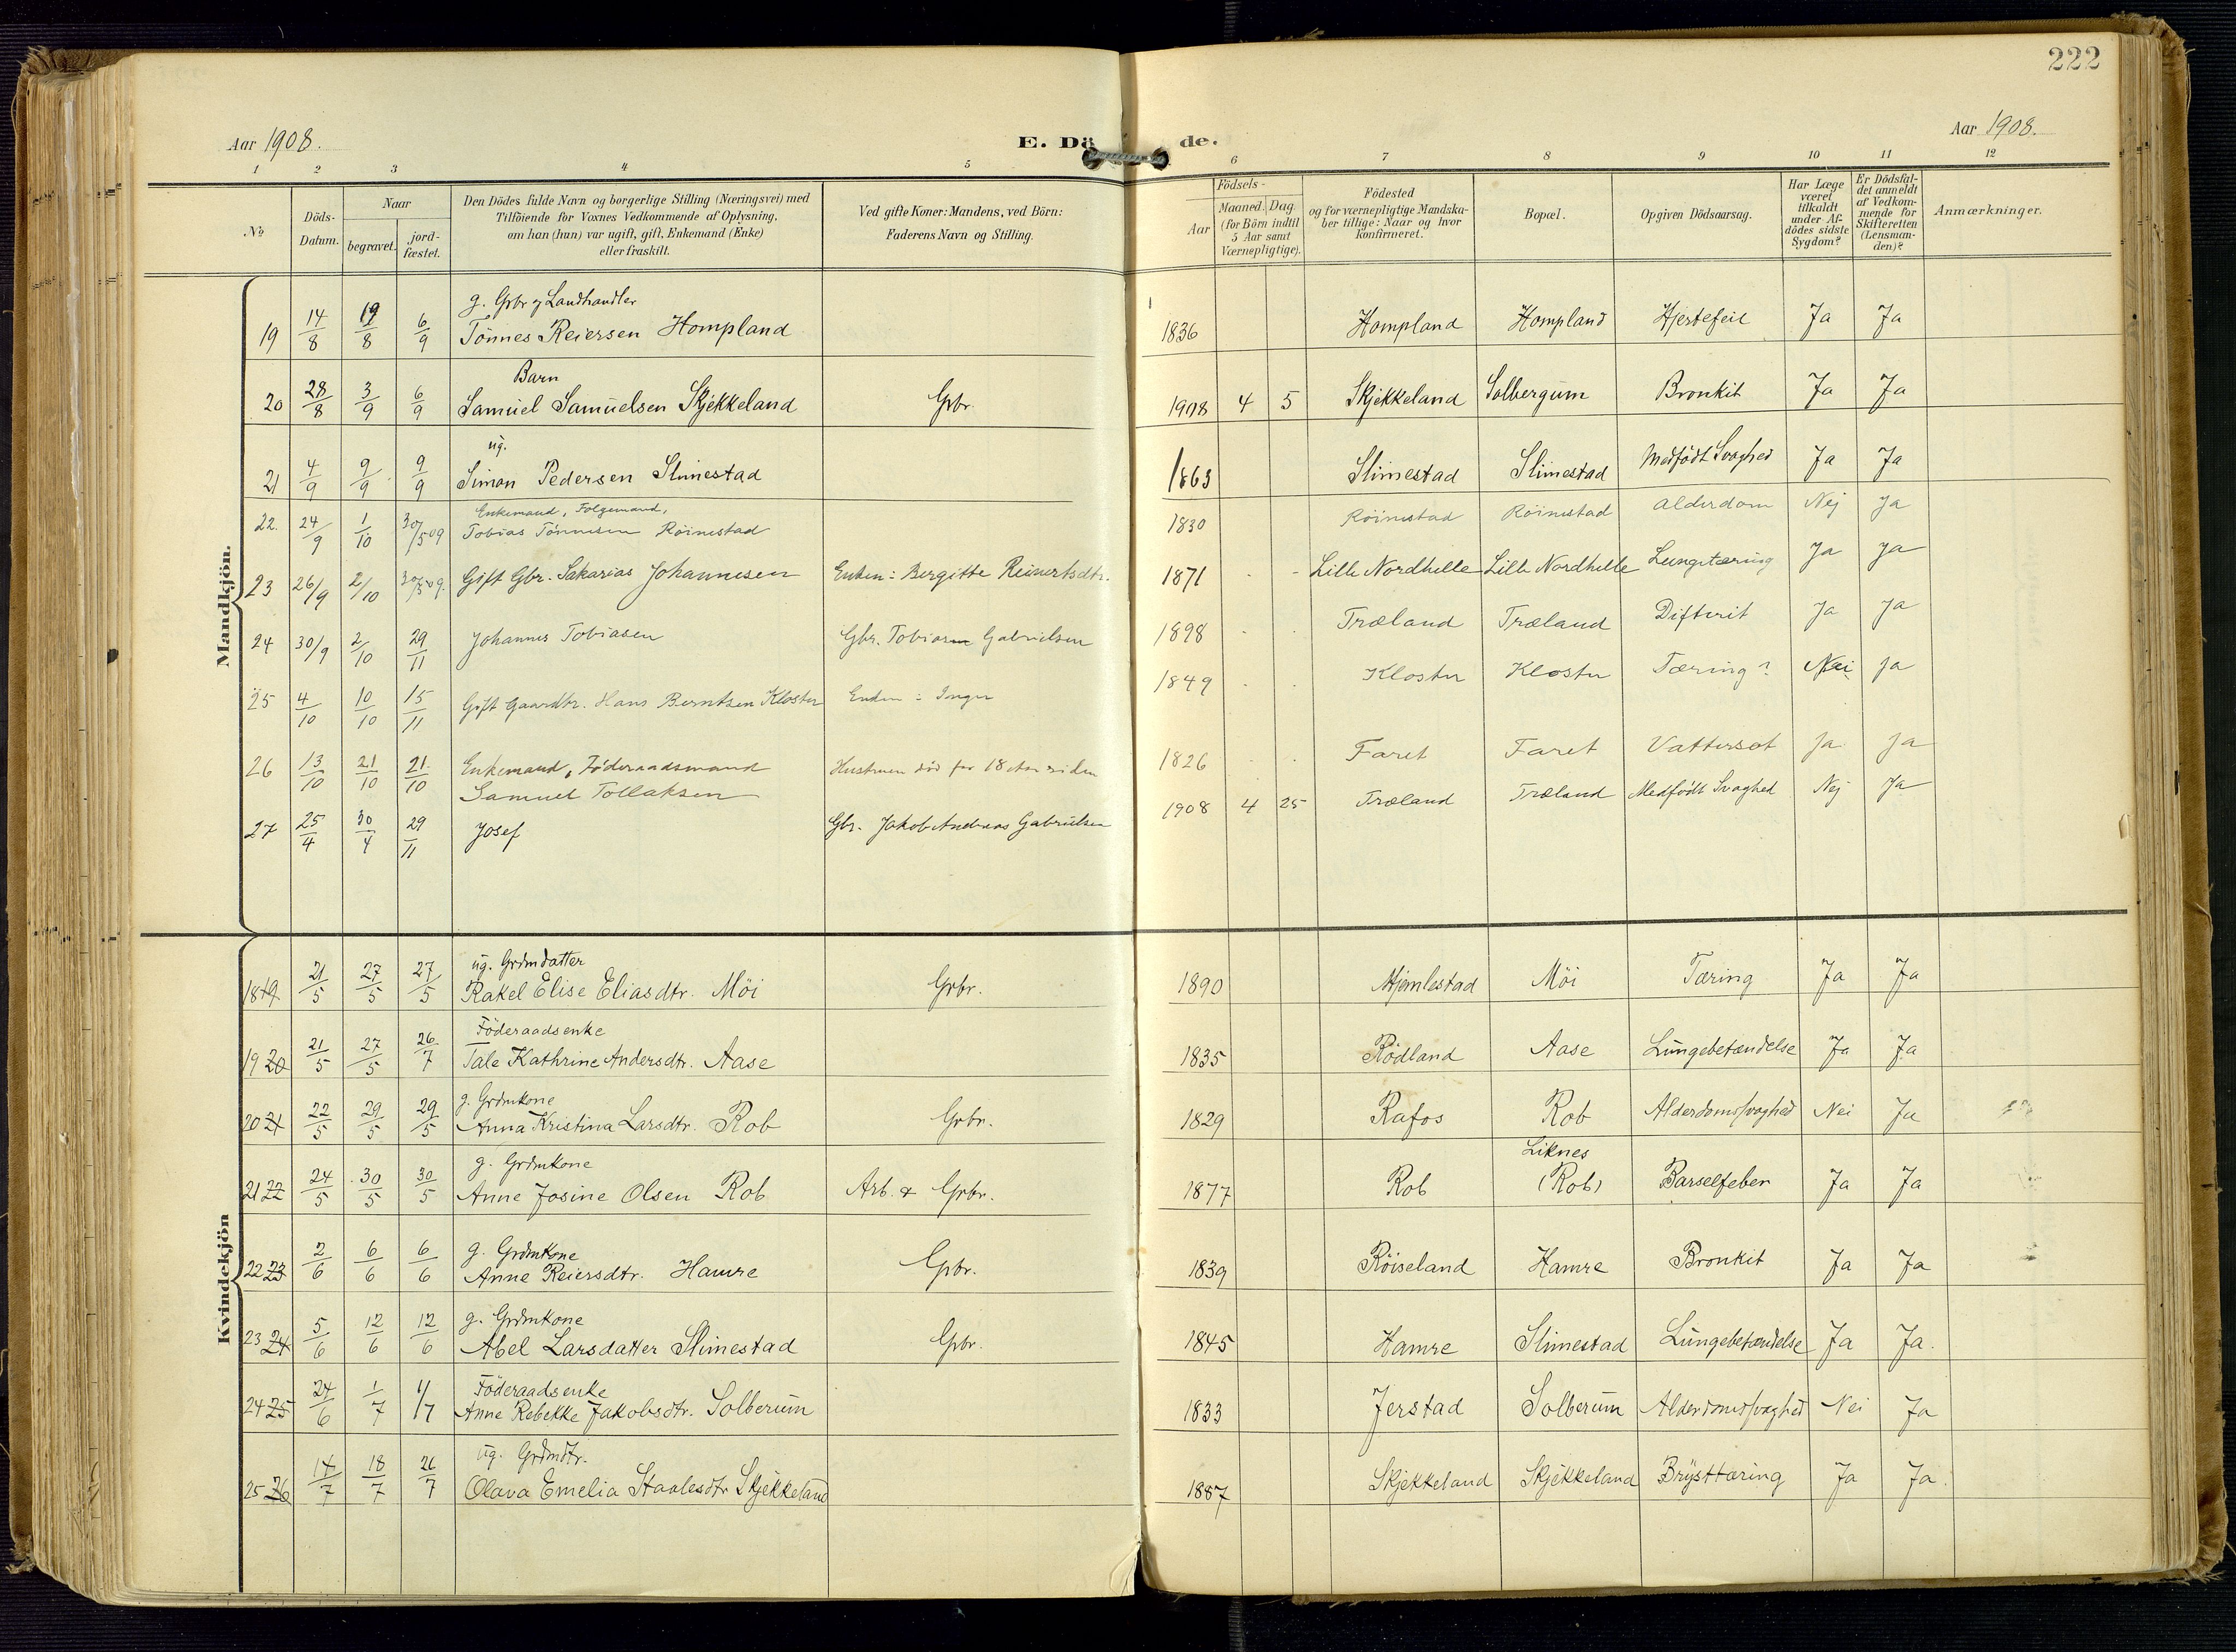 222
Aar 1908.
E. Dö de.
Aar 1908.
1 2 3 4 5 6 7 8 9 10 11 12
No
Döds-Datum.
Naar
begravet.
jord-fæstet.
Den Dödes fulde Navn og borgerlige Stilling (Næringsvei) med
Tilföiende for Voxnes Vedkommende af Oplysning,
om han (hun) var ugift, gift, Enkemand (Enke)
eller fraskilt.
Ved gifte Koner: Mandens, ved Börn:
Faderens Navn og Stilling.
Födsels-
Aar
Maaned. Dag
(for Börn indtil
5 Aar samt
Værnepligtige).
Födested
og for værnepligtige Mandska-
ber tillige: Naar og hvor
konfirmeret.
Bopæl.
Opgiven Dödsaarsag.
Har Læge
været
tilkaldt
under Af-
dödes sidste
Sygdom?
Er Dödsfal-
det anmeldt
af Vedkom-
mende for
Skifteretten
(Lensman-
den)?
Anmærkninger.
Mandkjön.
g. Gbr og Landhandler
19 14/8 19/8 6/9 Tönnes Reiersen Hompland 1836 Hompland Hompland Hjertefeil Ja Ja
Barn
20 28/8 3/9 6/9 Samuel Samuelsen Skjekkeland Gbr. 1908 4 5 Skjekkeland Solbergum Bronkit Ja Ja
ug.
21 4/9 9/9 9/9 Simon Pedersen Slimestad 1863 Slimestad Slimestad Medfödt Svaghed Ja Ja
Enkemand, Folgemand,
22. 24/9 1/10 30/5 09 Tobias Tönnesen Röinestad 1830 Röinestad Röinestad Alderdom Nej Ja
23 26/9 2/10 30/5 09. Gift Gbr. Sakarias Johannesen Enken: Bergitte Reinertsdtr. 1871 Lille Nordhelle Lille Nordhelle Lungetæring Ja Ja
24 30/9 2/10 29/11 Johannes Tobiasen Gbr. Tobias Gabrielsen 1898 Træland Træland Difterit Ja Ja
25 4/10 10/10 15/11 Gift Gaardbr. Hans Berntsen Kloster Enken: Inger 1849 Kloster Kloster Tæring? Nei Ja
26 13/10 21/10 21/10 Enkemand, Föderaadsmand Hustruen död for 18 aar siden 1826 Faret Faret Vattersot Ja Ja
Samuel Tollaksen
27 25/4 30/4 29/11 Josef Gbr. Jakob Andreas Gabrielsen 1908 4 25 Træland Træland Medfödt Svaghed Nej Ja
Kvindekjön
ug. Grdmdatter
18 19 21/5 27/5 27/5 Rakel Elise Eliasdtr. Möi Gbr. 1890 Mjemlestad Möi Tæring Ja Ja
Föderaadsenke
19 20 21/5 27/5 26/7 Tale Kathrine Andersdtr. Aase 1835 Rödland Aase Lungebetændelse Ja Ja
g. Grdmkone
20 21 22/5 29/5 29/5 Anna Kristina Larsdtr. Rob Gbr. 1829 Rafos Rob Alderdomssvaghed Nei Ja
g. Grdmkone Liknes
21 22 24/5 30/5 30/5 Anne Josine Olsen Rob Arb. & Gbr. 1877 Rob (Rob) Barselfeber Ja Ja
g. Grdmkone
22 23 2/6 6/6 6/6 Anne Reiersdtr. Hamre Gbr. 1839 Röiseland Hamre Bronkit Ja Ja
g. Grdmkone
23 24 5/6 12/6 12/6 Abel Larsdatter Slimestad Gbr. 1845 Hamre Slimestad Lungebetændelse Ja Ja.
Föderaadsenke
24 25 24/6 1/7 1/7 Anne Rebekke Jakobsdtr. Solberum 1833 Jerstad Solberum Alderdomssvaghed Nei Ja
ug. Grdmdtr.
25 26 14/7 18/7 26/7 Olava Emelia Staalesdtr Skjekkeland 1887 Skjekkeland Skjekkeland Brysttæring Ja Ja.